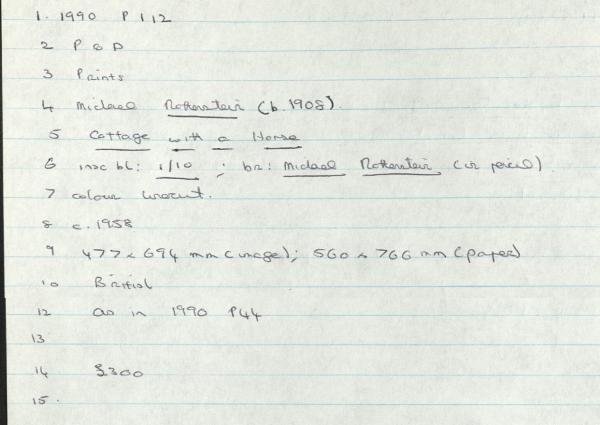 1. 1990 P 112
2 P & D
3 Prints
4 Michael Rothenstein (b. 1908).
5 Cottage with a Horse
6 insc bl: 1/10 ; br: Michael Rothenstein (in pencil)
7 colour linocut.
8 c. 1958
9 477 x 694 mm (image); 560 x 766 mm (paper)
10 British
12 as in 1990 P44
13
14 £300
15.